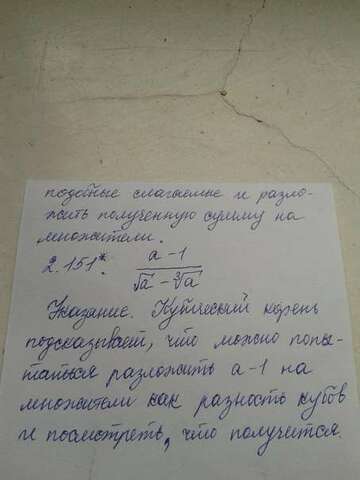 подобные слагаемые и разло-
жить полученную сумму на
множители.
2.151*. a-1
√a - ∛a
Указание. Кубический корень
подсказывает, что можно попы-
таться разложить a-1 на
множители как разность кубов
и посмотреть, что получится.